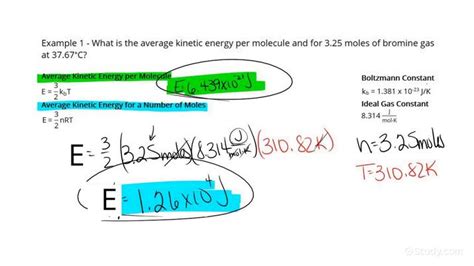 Example 1 - What is the average kinetic energy per molecule and for 3.25 moles of bromine gas
at 37.67°C?
Average Kinetic Energy per Molecule
E = 3/2 k_bT
E= 6.439x10^-21 J
Average Kinetic Energy for a Number of Moles
E = 3/2 nRT
Boltzmann Constant
k_b = 1.381 x 10^-23 J/K
Ideal Gas Constant
8.314 J/mol·K
E = 3/2 (3.25moles)(8.314 J/mol·K)(310.82K)
E = 1.26x10^4 J
n=3.25moles
T=310.82K
Study.com